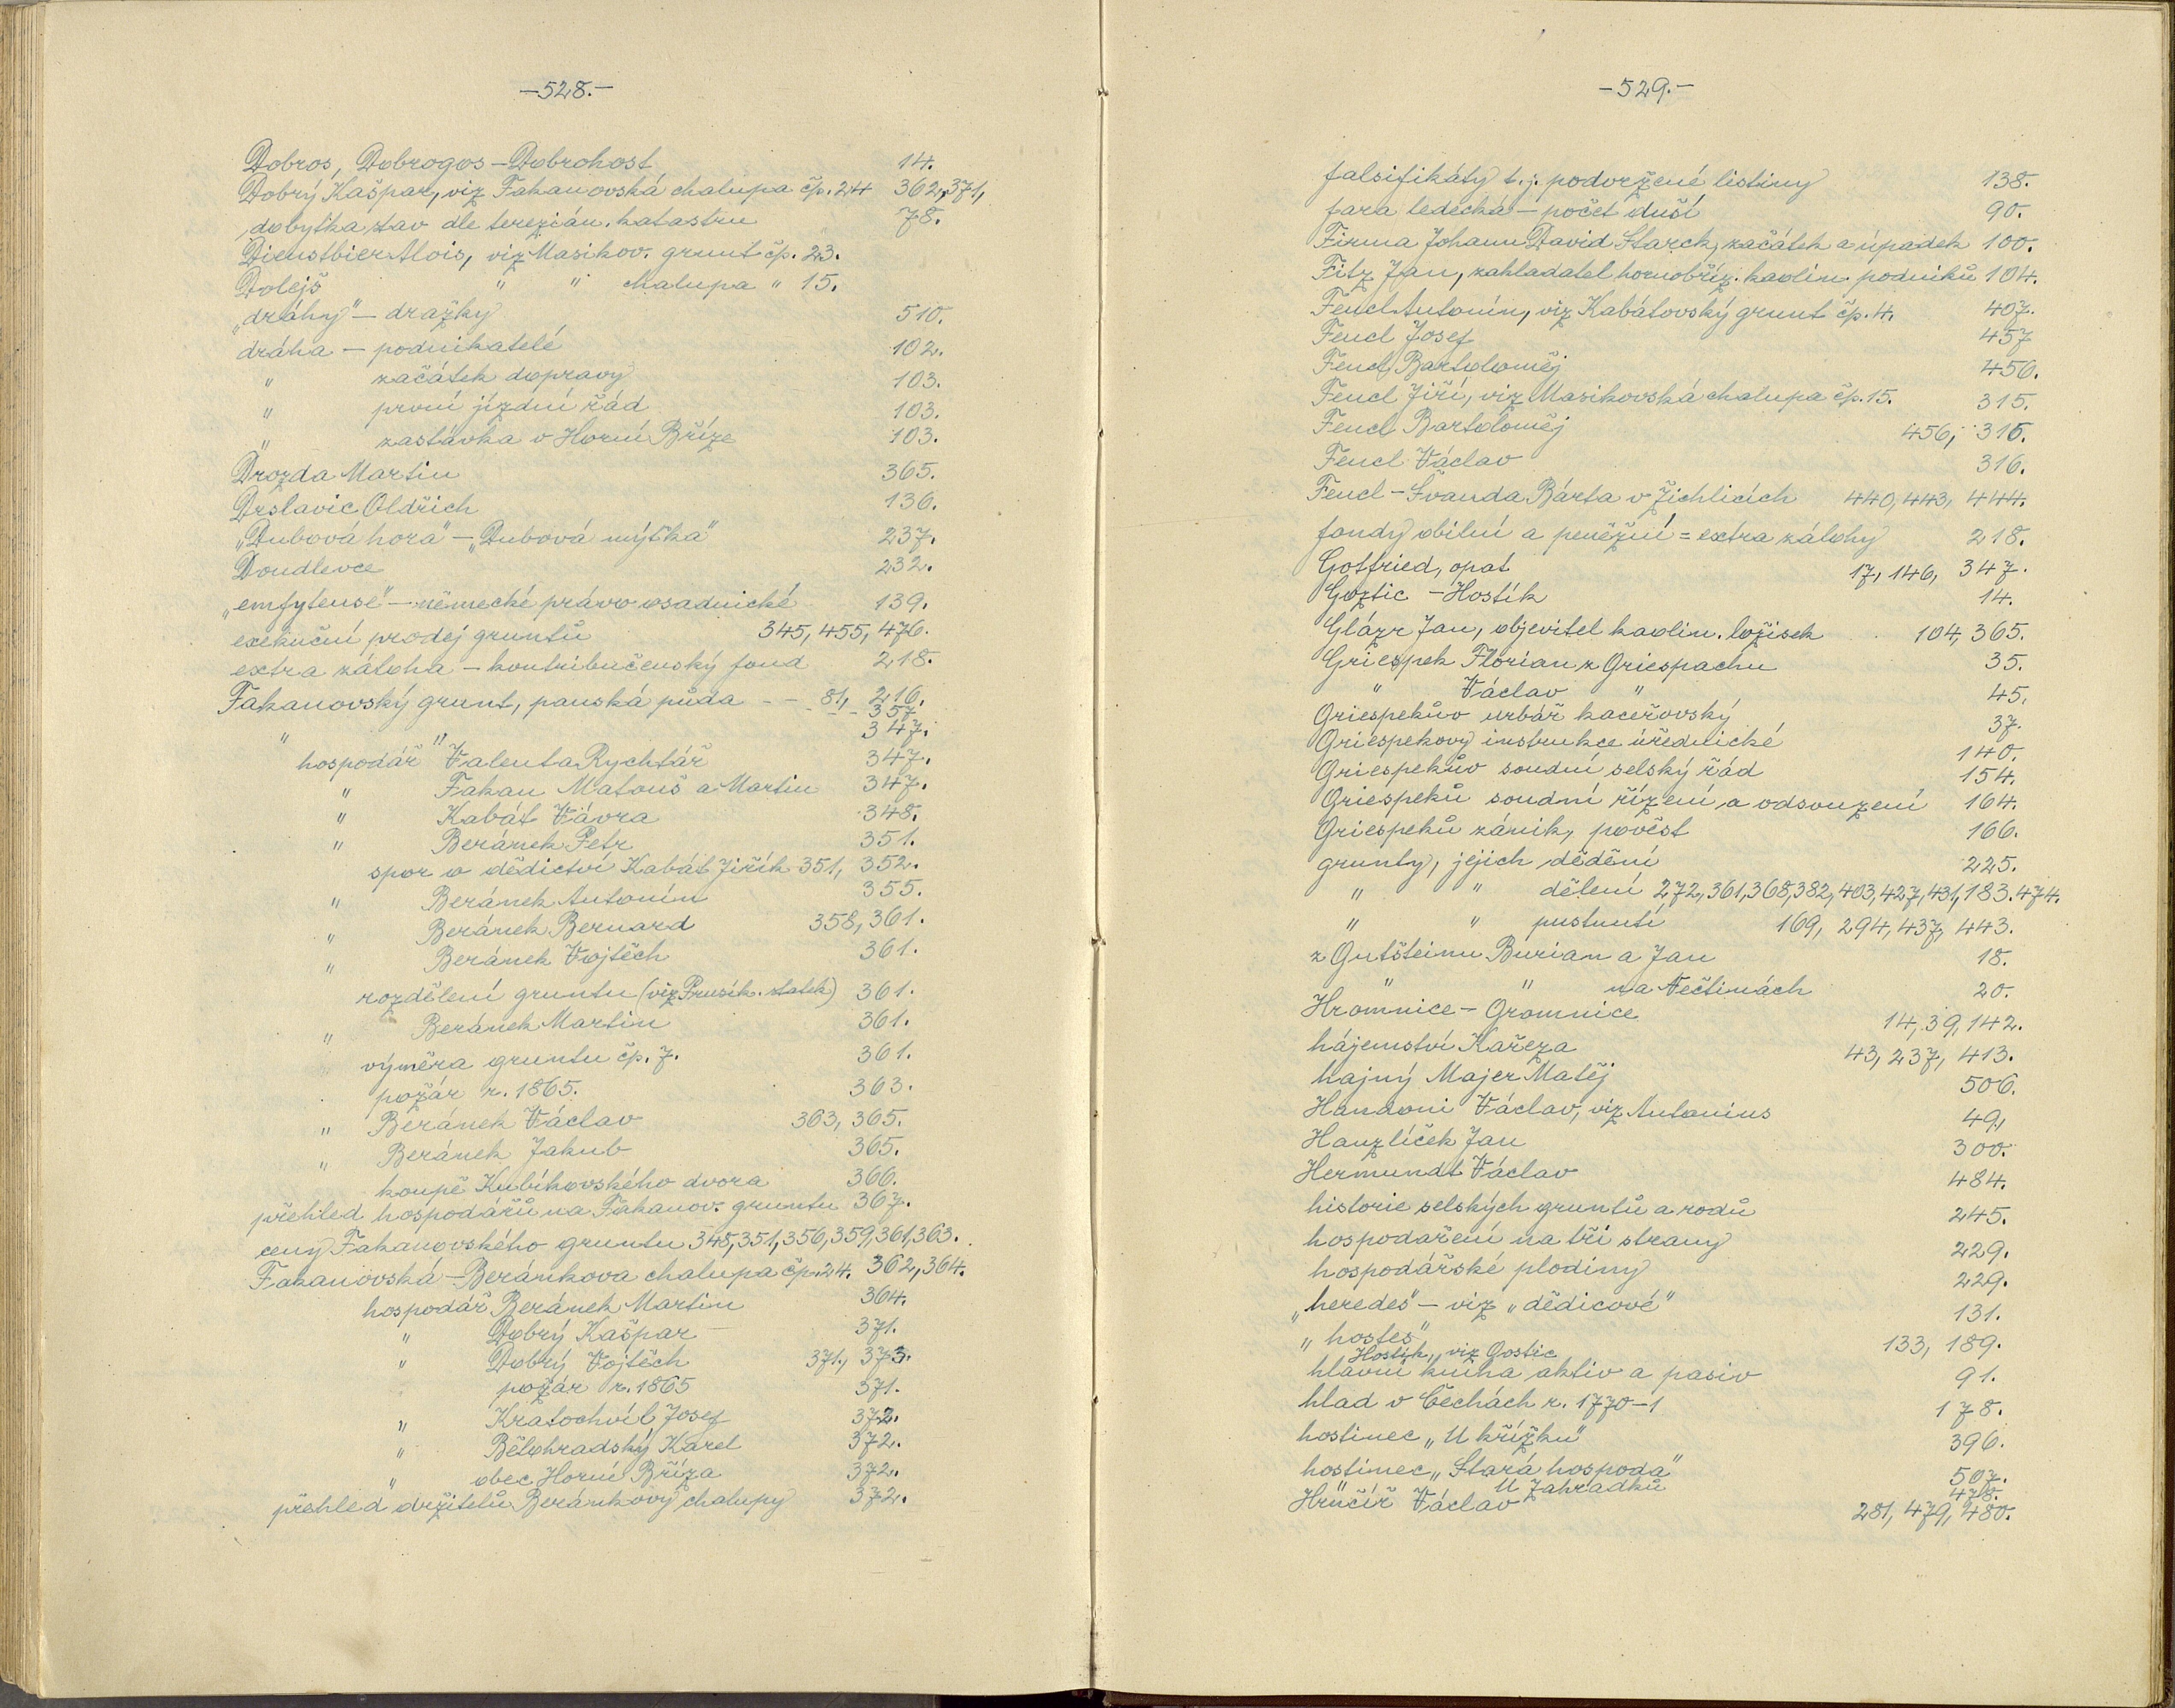 -528.-
Dobros, Dobrogos - Dobrohost 14.
Dobrý Kašpar, viz Fakanovská chalupa čp. 24 362, 371,
dobytka stav dle terezián. katastru 78.
Dienstbier Alois, viz Masikov. grunt čp. 23.
Dolejš " " chalupa " 15.
„dráhy" - dražky 510.
dráha - podnikatelé 102.
" začátek dopravy 103.
" první jízdní řád 103.
" zastávka v Horní Bříze 103.
Drozda Martin 365.
Drslavic Oldřich 136.
„Dubová hora" - „Dubová mýtka" 237.
Doudlevce 232.
„emfyteuse" - německé právo osadnické 139.
exekuční prodej gruntů 345, 455, 476.
extra záloha - kontribučenský fond 218.
Fakanovský grunt, panská půda - - 81, 216.
- - - 357
" " 347.
hospodář Valenta Rychtář 347.
" Fakan Matouš a Martin 347.
" Kabát Vávra 348.
" Beránek Petr 351.
spor o dědictví Kabát Jiřík 351, 352.
" Beránek Antonín 355.
" Beránek Bernard 358, 361.
" Beránek Vojtěch 361.
rozdělení gruntu (viz Prusík. statek) 361.
" Beránek Martin 361.
výměra gruntu čp. 7. 361.
požár r. 1865. 363.
" Beránek Václav 363, 365.
" Beránek Jakub 365.
koupě Kubíkovského dvora 366.
přehled hospodářů na Fakanov. gruntu 367.
ceny Fakanovského gruntu 348, 351, 356, 359, 361, 363.
Fakanovská - Beránkova chalupa čp. 24. 362, 364.
hospodář Beránek Martin 364.
" Dobrý Kašpar 371.
" Dobrý Vojtěch 371, 373.
požár r. 1865 371.
" Kratochvíl Josef 372.
" Bělohradský Karel 372.
" obec Horní Bříza 372.
přehled držitelů Beránkovy chalupy 372.
-529.-
falsifikáty t. j. podvržené listiny 138.
fara ledecká - počet duší 90.
Firma Johann David Starck, začátek a úpadek 100.
Fitz Jan, zakladatel hornobříz. kaolin. podniků 104.
Fencl Antonín, viz Kabátovský grunt čp. 4. 407.
Fencl Josef 457
Fencl Bartoloměj 456.
Fencl Jiří, viz Masikovská chalupa čp. 15. 315.
Fencl Bartoloměj 456, 316.
Fencl Václav 316.
Fencl - Švanda Bárta v Žichlicích 440, 443, 444.
fondy obilní a peněžní = extra zálohy 218.
Gotfried, opat 17, 146, 347.
Goztic - Hostík 14.
Glázr Jan, objevitel kaolin. ložisek 104, 365.
Griespek Florian z Griespachu 35.
" Václav " 45.
Griespekův urbář kaceřovský 37.
Griespekovy instrukce úřednické 140.
Griespekův soudní selský řád 154.
Griespeků soudní řízení a odsouzení 164.
Griespeků zánik, pověst 166.
grunty, jejich dědění 225.
" " dělení 272, 361, 368, 382, 403, 427, 431, 183. 474.
" " pustnutí 169, 294, 437, 443.
z Gutšteinu Burian a Jan 18.
" " na Nečtinách 20.
Hromnice - Gromnice 14, 39, 142.
hájemství Kařeza 43, 237, 413.
hajný Majer Matěj 506.
Handoni Václav, viz Antonius 49,
Hanzlíček Jan 300.
Hermundt Václav 484.
historie selských gruntů a rodů 245.
hospodaření na tři strany 229.
hospodářské plodiny 229.
„heredes" - viz „dědicové" 131.
„hostes" 133, 189.
Hostík, viz Gostic
hlavní kniha aktiv a pasiv 91.
hlad v Čechách r. 1770-1 178.
hostinec „U křížku" 396.
hostinec „Stará hospoda" 507.
U Zahradků 478.
Hrůčíř Václav 281, 479, 480.